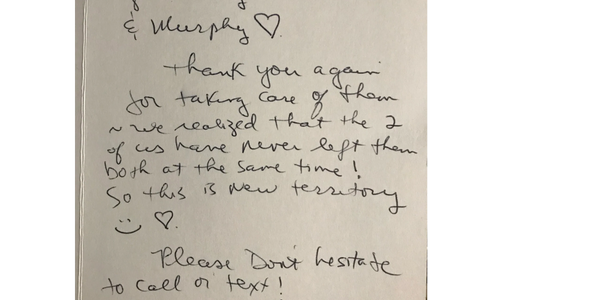 & Murphy ♡.
Thank you again
for taking care of them
~ we realized that the 2
of us have never left them
both at the same time!
So this is new territory
:) ♡.
Please Don't hesitate
to call or text!